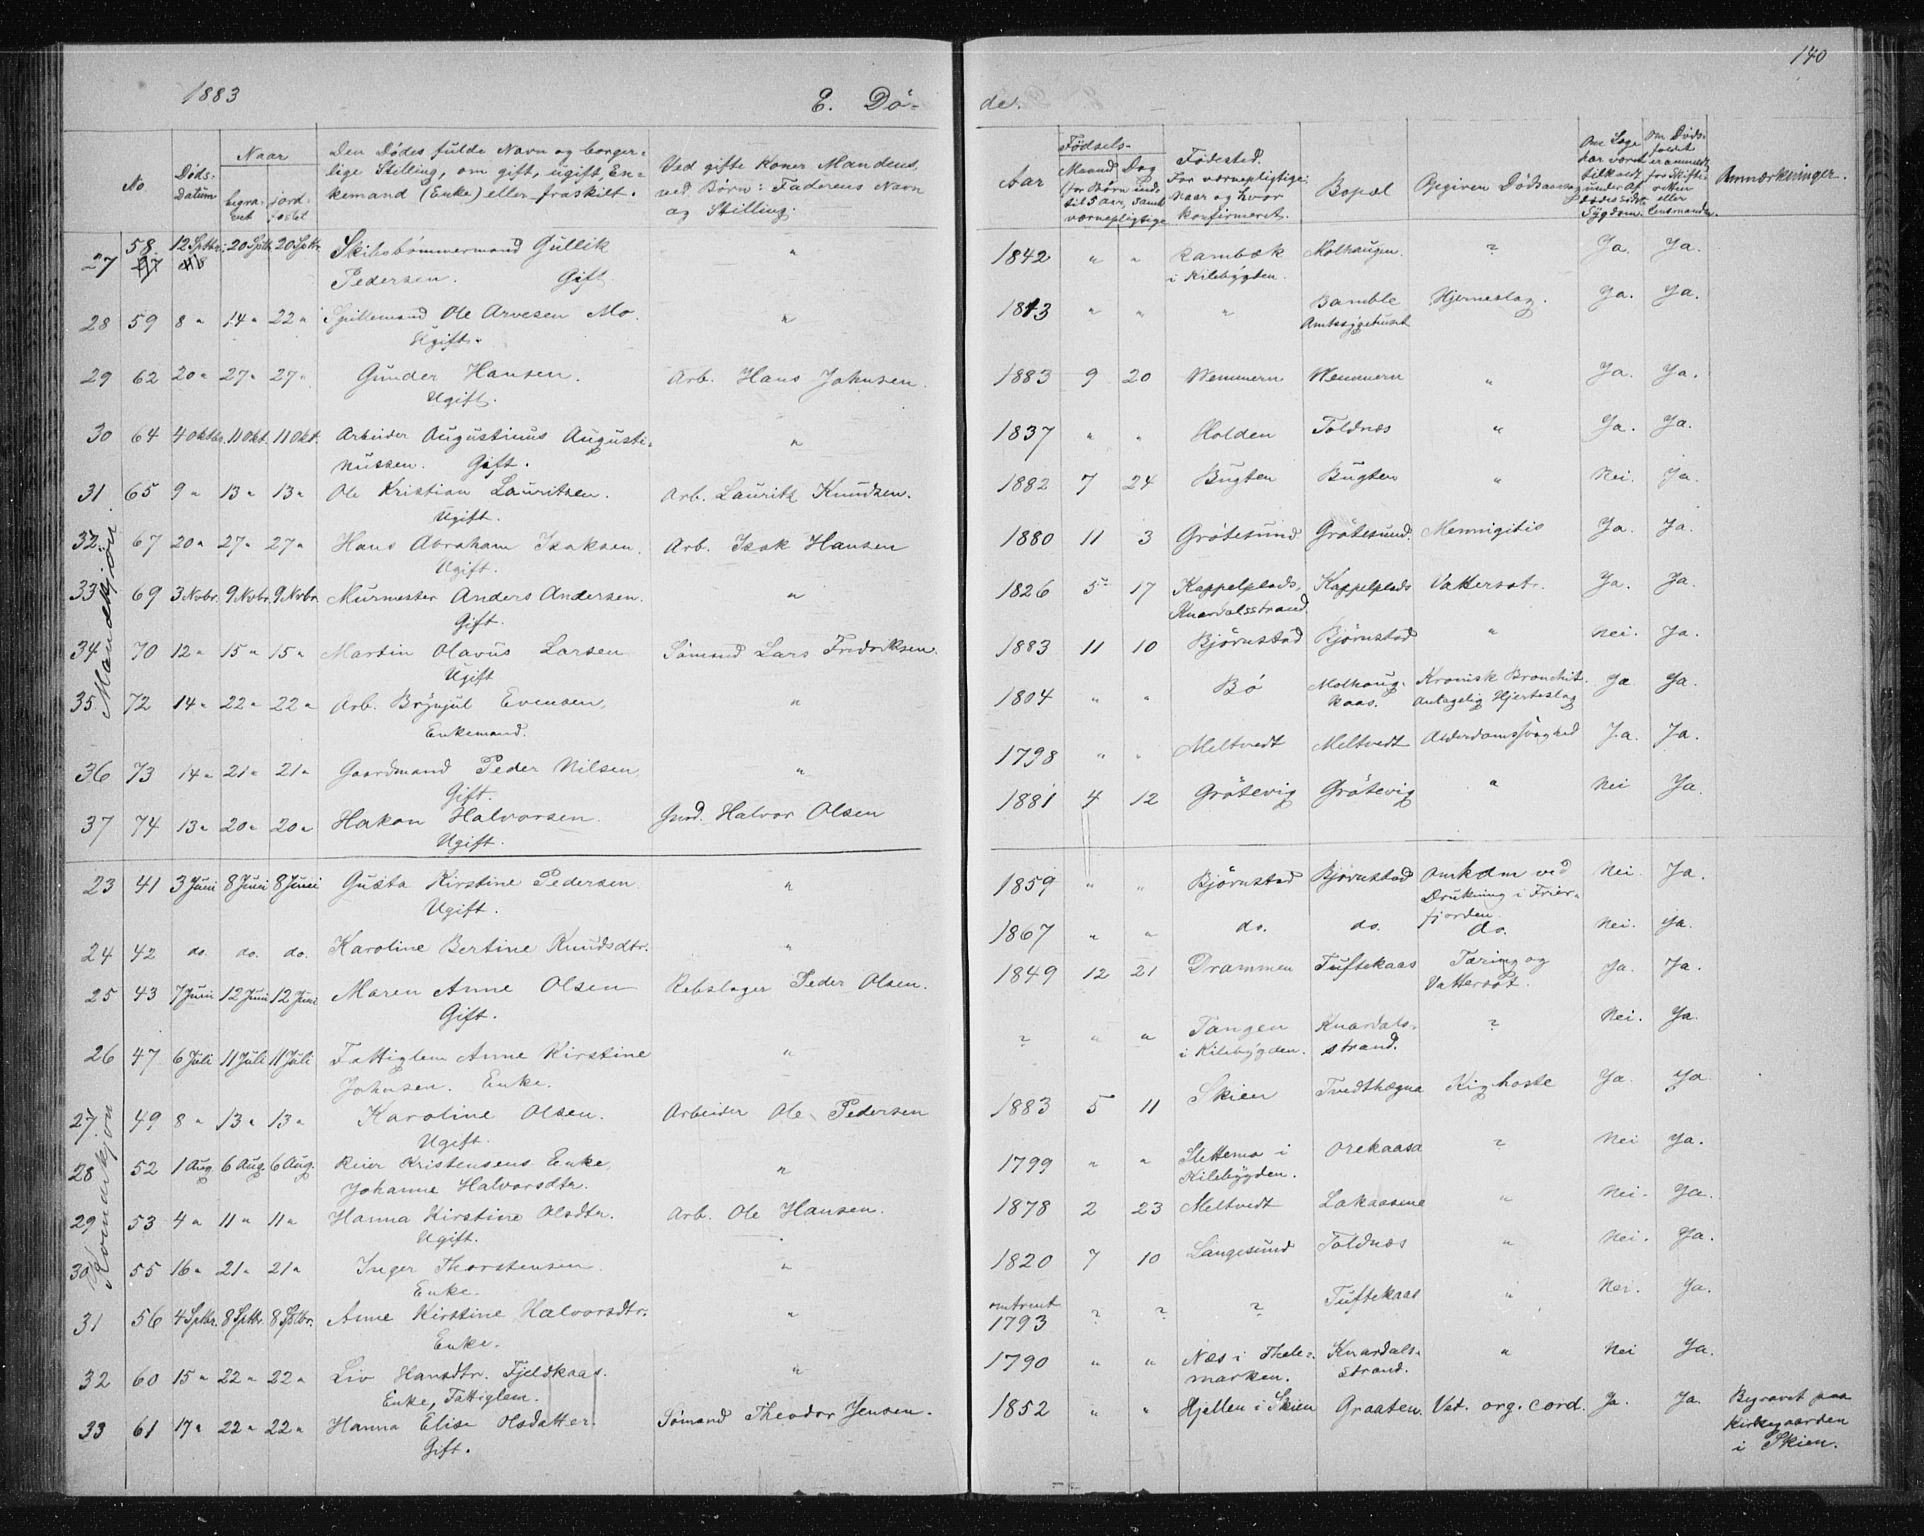 1883 E. Dö-
de. 140
No
Döds-
Datum
Naar
begra-
vet
jord-
fæstet
Den Dödes fulde Navn og borger-
lige Stilling, om gift, ugift, En-
kemand (Enke) eller fraskilt.
Ved gifte Koner Mandens,
ved Börn: Faderens Navn
og Stilling.
Aar
Fødsels-
Maaned
(for Børn
til 5 Aar,
værnepligtige
Dag
Födested.
For værnepligtige:
Naar og hvor
konfirmeret.
Bopæl
Opgiven Dødsaarsag
Om Læge
har været
tilkaldt
under
Sygdom.
Om Döds-
faldet
er anmeldt
for Skifte-
retten
eller
Lensmanden.
Anmærkninger.
Mandkjön.
27 58 12 Septbr. 20 Sptb. 20 Sptb. Skibstömmermand Gullik " 1842 " " Rambæk Molhaugen. ? Ja. Ja.
Pedersen. Gift. i Kilebygden.
28 59 8 " 14 " 22 " Spillemand Ole Arvesen Mo. " 1813 " " " Bamble Hjerneslag. Ja. Ja.
Ugift. Amtssygehuset
29 62 20 " 27 " 27 " Gunder Hansen. Arb. Hans Johnsen. 1883 9 20 Wemmern Wemmern " Ja. Ja.
Ugift.
30 64 4 Oktbr. 11 Okt. 11 Okt. Arbeider Augustinus Augusti- " 1837 " " Holden Toldnæs " Ja. Ja.
nussen. Gift.
31 65 9 " 13 " 13 " Ole Kristian Lauritsen. Arb. Lauritz Knudsen. 1882 7 24 Bugten Bugten " Nei. Ja.
Ugift.
32 67 20 " 27 " 27 " Hans Abraham Isaksen. Arb. Isak Hansen 1880 11 3 Grötesund Grötesund. Mennigitis Ja. Ja.
Ugift.
33 69 3 Nvbr. 9 Nvbr. 9 Nvbr. Murmester Anders Andersen. " 1826 5 17 Kappelplads, Kappelplads Vattersot. Ja. Ja.
Gift. Knardalsstrand.
34 70 12 " 15 " 15 " Martin Olavus Larsen Sømand Lars Fredriksen. 1883 11 10 Björnstad Björnstad " Nei. Ja.
Ugift
35 72 14 " 22 " 22 " Arb. Brynjul Evensen, " 1804 " " Bö Molhaug- Kronisk Bronchit. Ja. Ja.
Enkemand. kaas. Antagelig Hjerteslag
36 73 14 " 21 " 21 " Gaardmand Peder Nilsen " 1798 " " Meltvedt Meltvedt Alderdomssvaghed Ja. Ja.
Gift.
37 74 13 " 20 " 20 " Hakon Halvorsen. Gmd. Halvor Olsen 1881 4 12 Grötevig Grötevig " Nei Ja.
Ugift.
Kvindekjön
23 41 3 Juni 8 Juni 8 Juni Gusta Kirstine Pedersen " 1859 " " Björnstad Björnstad Omkom ved Nei. Ja.
Ugift. Drukning i Frier-
fjorden.
24 42 do. do. do. Karoline Bertine Knudsdtr. " 1867 " " do. do. do. Nei. Ja.
25 43 7 Juni 12 Juni 12 Juni Maren Anne Olsen Rebslager Peder Olsen. 1849 12 21 Drammen Tuftekaas Tæring og Ja. Ja.
Gift. Vattersot.
26 47 6 Juli 11 Juli 11 Juli Fattiglem Anne Kirstine " ? " " Tangen Knardals- ? Nei. Ja.
Johnsen. Enke. i Kilebygden. strand.
27 49 8 " 13 " 13 " Karoline Olsen. Arbeider Ole Pedersen 1883 5 11 Skien Tvedthægna Kighoste Ja. Ja
Ugift.
28 52 1 Aug. 6 Aug. 6 Aug. Reier Kristensens Enke, " 1799 " " Slettemo i Orekaasa ? Nei Ja.
Johanne Halvorsdtr. Kilebygden.
29 53 4 " 11 " 11 " Hanna Kirstine Olsdtr. Arb. Ole Hansen. 1878 2 23 Meltvedt Lakaasene " Nei. Ja.
Ugift.
30 55 16 " 21 " 21 " Inger Thorstensen. " 1820 7 10 Langesund Toldnæs " Nei. Ja.
Enke.
31 56 4 Sptbr. 8 Sptbr. 8 Sptbr. Anne Kirstine Halvorsdtr. " omtrent 1793 ? ? ? Tuftekaas " Nei. Ja.
Enke.
32 60 15 " 22 " 22 " Liv Hansdtr. Fjeldkaas. " 1790 " " Næs i Thele- Knardals- " Nei Ja.
Enke, Fattiglem. marken. strand.
33 61 17 " 22 " 22 " Hanna Elise Olsdatter. Sømand Theodor Jensen. 1852 " " Hjellen i Skien Graaten. Vit. org. cord. Ja. Ja. Begravet paa
Gift. Kirkegaarden
i Skien.